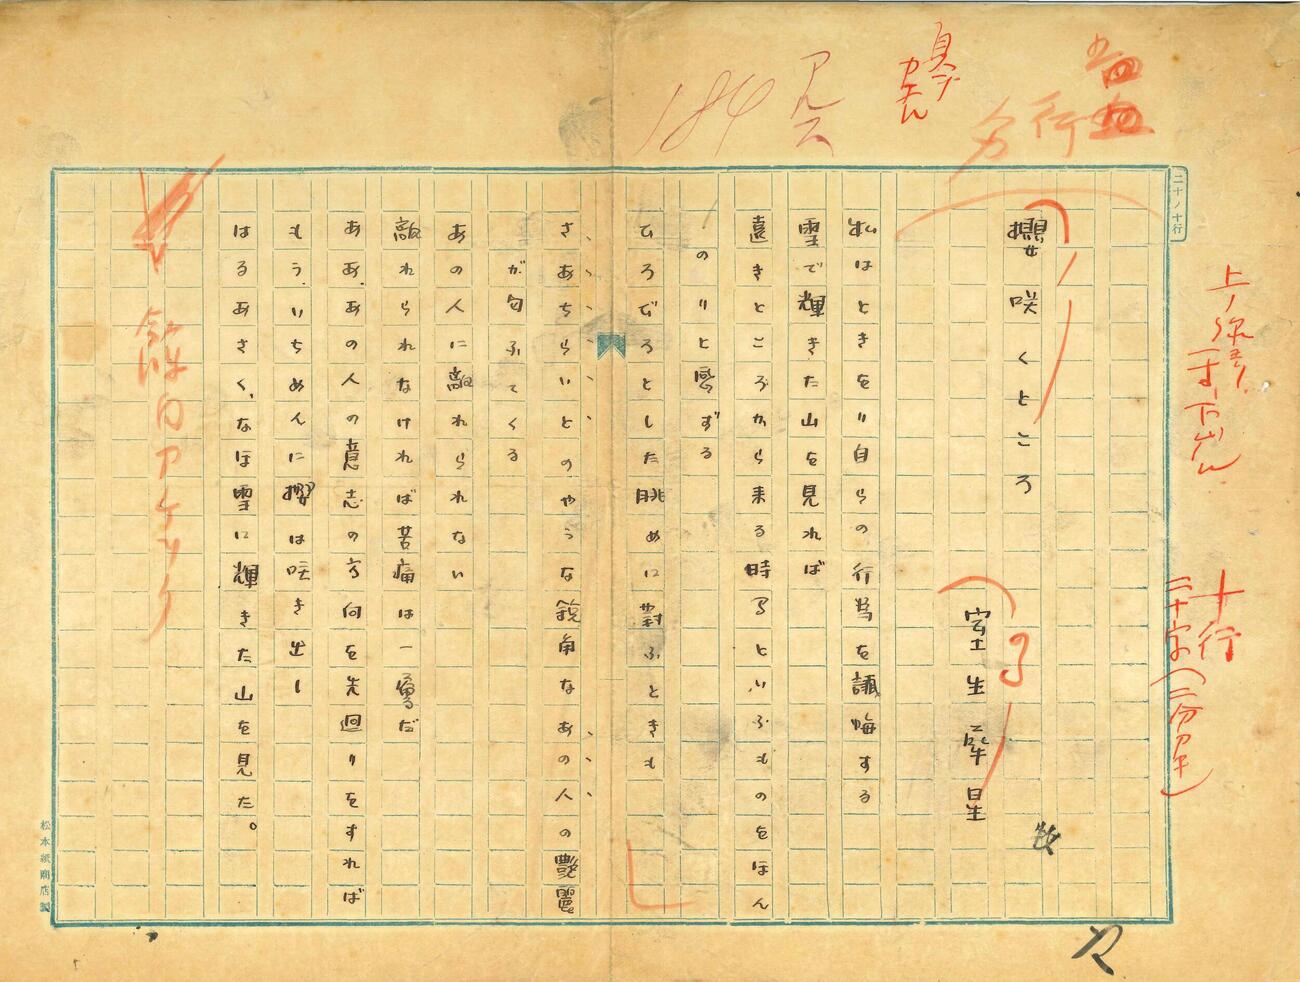 櫻咲くところ
室生犀星
私はときをり自らの行爲を懺悔する
雪で輝きた山を見れば
遠きところから来る時間といふものをほん
のりと感ずる
ひろびろとした眺めに對ふときも
さあちらいとのやうな鋭角なあの人の艶麗
が匂ふてくる
あの人に敵れられない
敵れられなければ苦痛は一層だ
ああ、あの人の意志の方向を先廻りをすれば
もう、いちめんに櫻は咲き出し
はるあさく、なほ雪に輝きた山を見た。
二十ノ十行
十行
二十字(二分アキ)
松本紙商店製